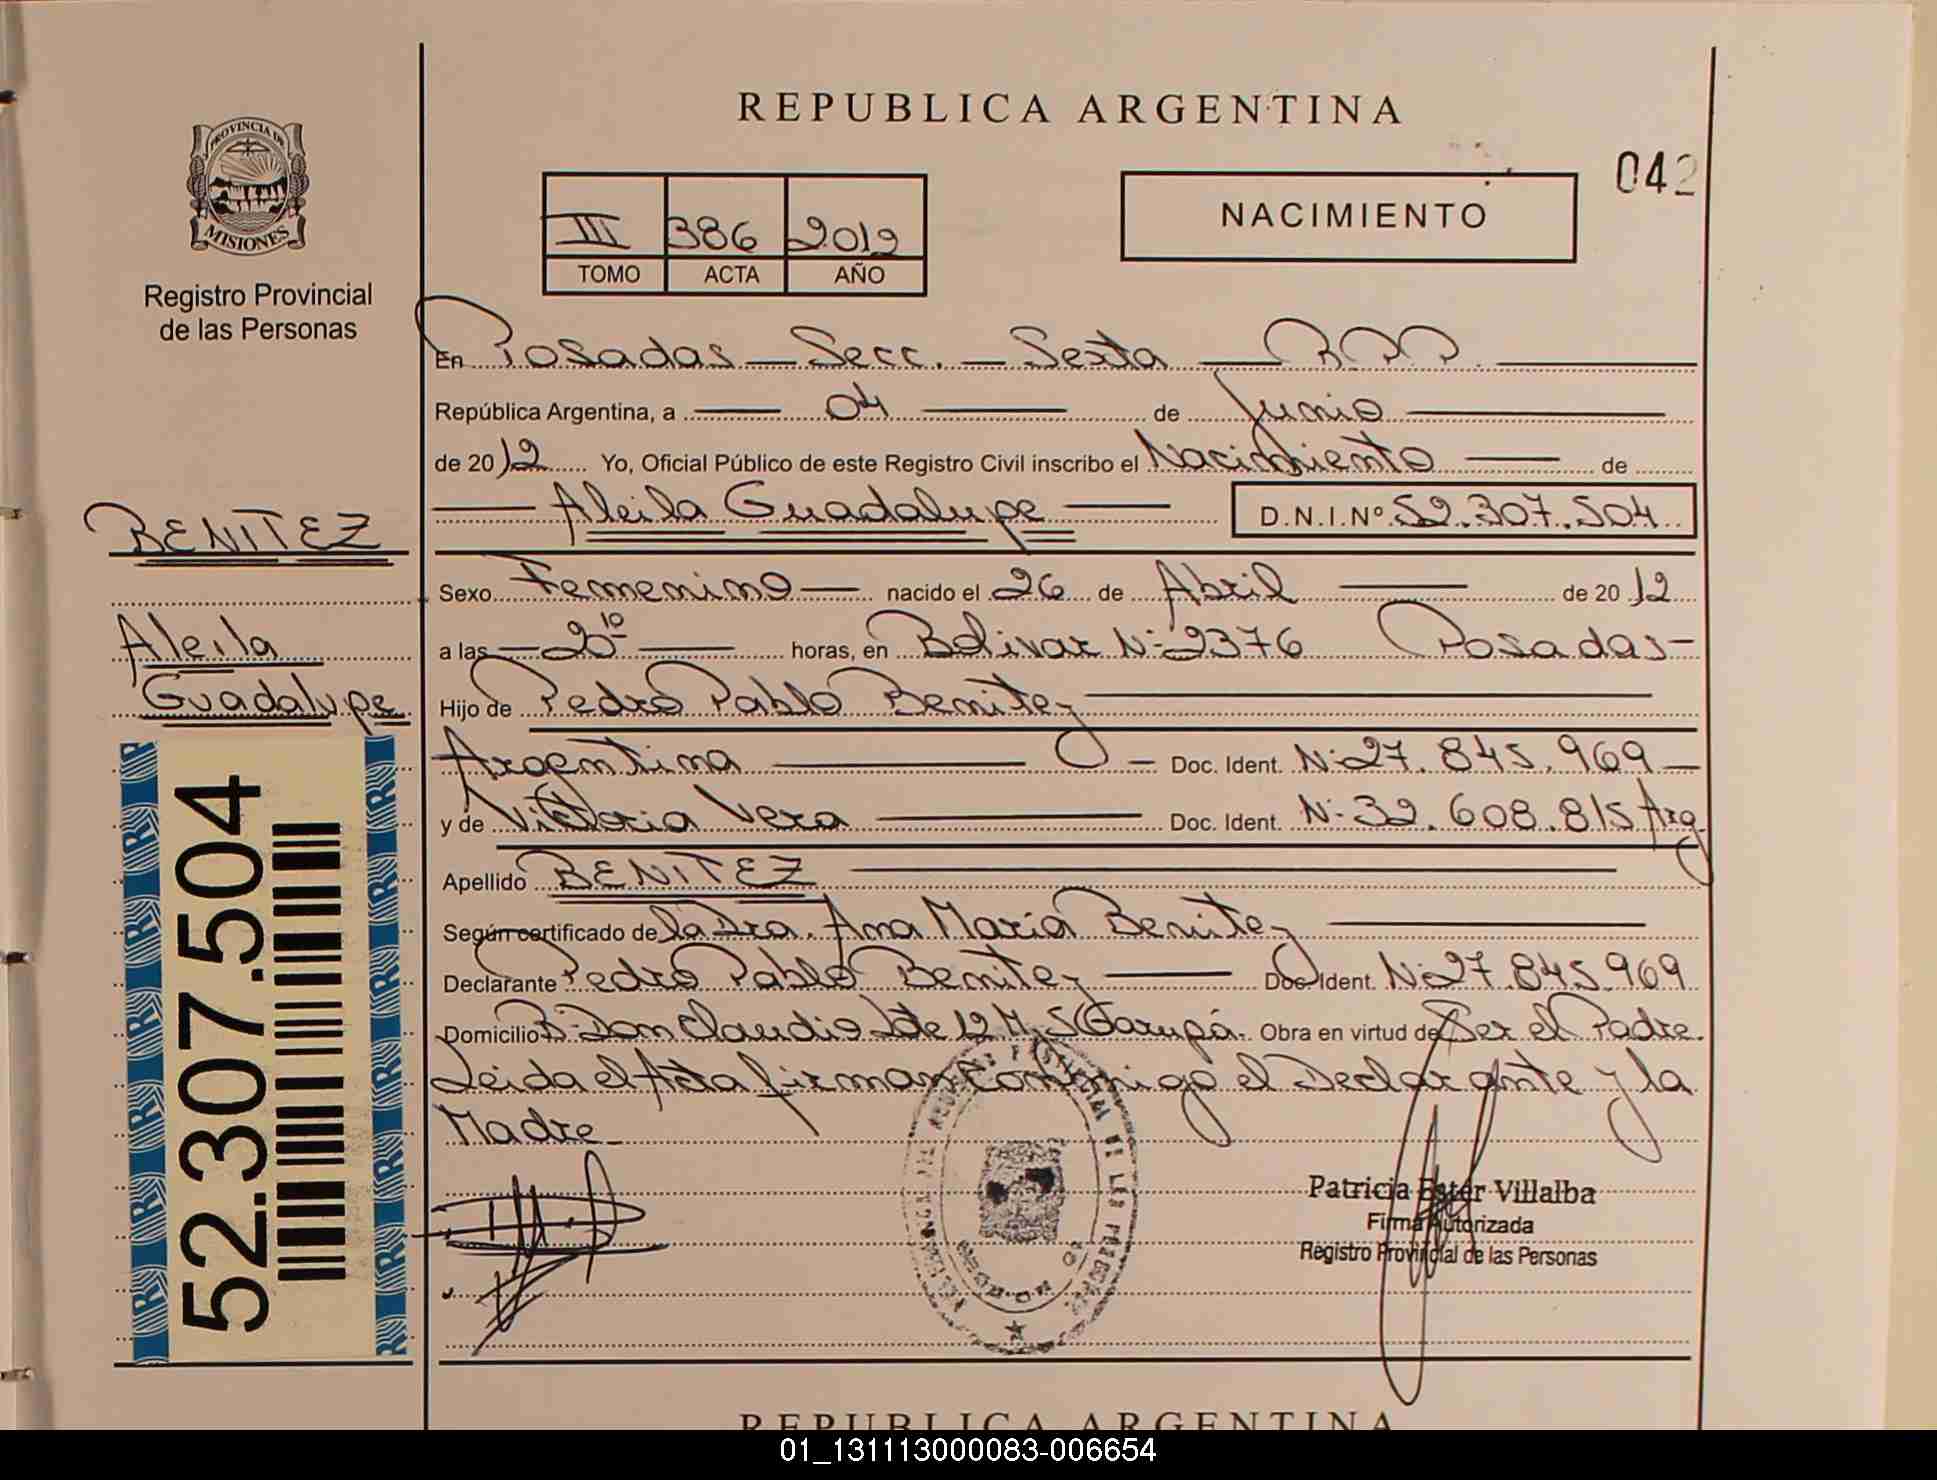 REPUBLICA ARGENTINA
042
PROVINCIA DE
MISIONES
Registro Provincial
de las Personas
III 386 2012
TOMO ACTA AÑO
NACIMIENTO
En Posadas — Secc. — Sexta — R.P.P.
República Argentina, a — 04 — de Junio
de 2012 Yo, Oficial Público de este Registro Civil inscribo el Nacimiento — de
— Aleila Guadalupe — D.N.I.Nº 52.307.504
BENITEZ
Aleila
Guadalupe
52.307.504
Sexo Femenino — nacido el 26 de Abril — de 2012
a las — 20 10 — horas, en Bolivar Nº 2376 Posadas —
Hijo de Pedro Pablo Benitez
Argentina — Doc. Ident. Nº 27.845.969 —
y de Victoria Vera — Doc. Ident. Nº 32.608.815 Arg
Apellido BENITEZ
Según certificado de la Dra. Ana María Benitez
Declarante Pedro Pablo Benitez — Doc Ident. Nº 27.845.969
Domicilio Bº Don Claudio Lote 12 M, 5 Garupá. Obra en virtud de Ser el Padre.
Leida el Acta firman Conmigo el Declarante y la
Madre
Patricia Ester Villalba
Firma Autorizada
Registro Provincial de las Personas
REPUBLICA ARGENTINA
01_131113000083-006654